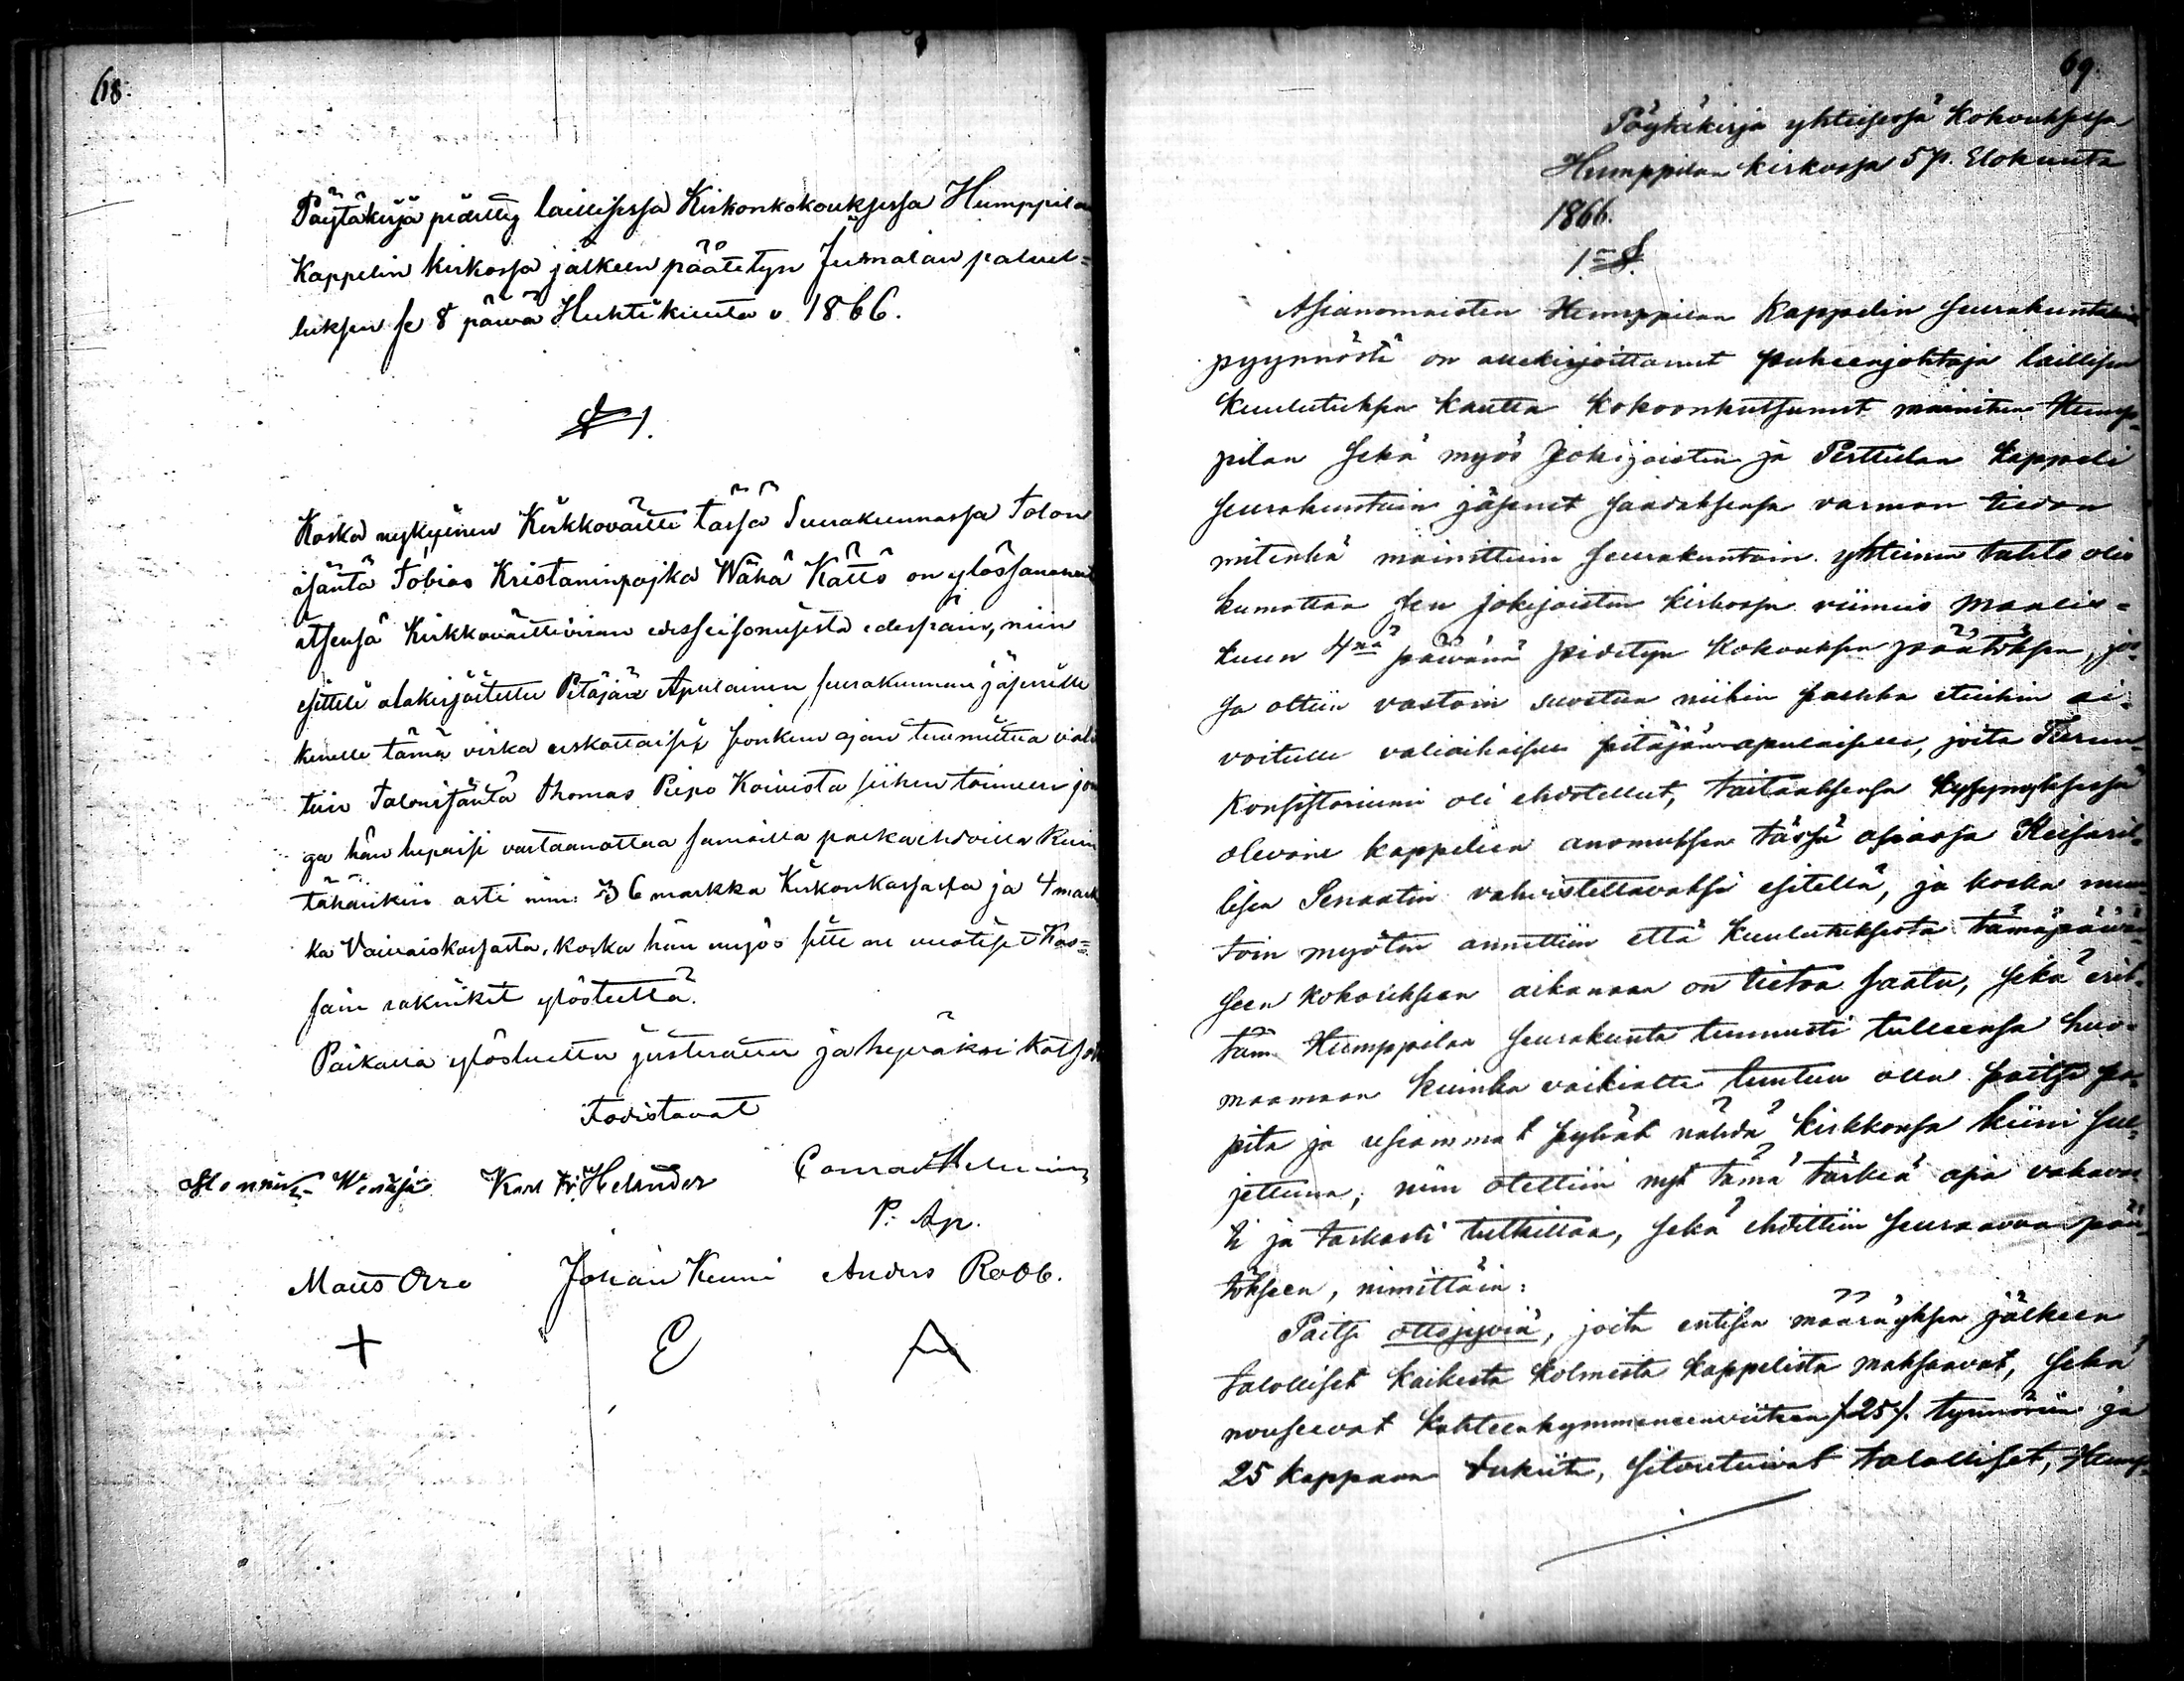 68.
Pöytäkirja pidetty laillisessa Kirkonkokouksessa Humppilan
Kappelin kirkossa jälkeen päätetyn Jumalan palvel=
luksen se 8 päivä Huhtikuuta v 1866.
§ 1.
Koska nykyinen Kirkkoväärtti tässä Seurakunnassa Talon
isäntä Tobias Kristaninpojka Wähä Kättö on ylössanonut
itsensä Kirkkoväärtiviran edesseisomisesta edespäin, niin
esitteli alakirjoitettu Pitäjän Apulainen, seurakunnan jäsenille
kenelle tämä virka uskottaisi jonkun ajan
tiin Talonisäntä Thomas Piipo Koivista siihen toimeen jon
ga hän lupaisi vastaanottaa samoilla palkaehdoilla kuin
tähänkin asti nim: 6 markka Kirkonkassasta ja 4 mark
ka Vaivaiskassasta, koska hän myös sitte on vuotiset Kas=
sain räkninkit ylöstellä.
Paikalla ylösluettu justerattu ja hyväksi katsottu
todistavat
Karl Fr. Helander Conrad Helenius
P: Ap.
Matts Orre Johan Kunni Anders Robb.
69.
Pöytäkirja yhteisessä Kokouksessa
Humppilan kirkossa 5 p. Elokuuta
1866.
1. §.
Asianomaisten Humppilan Kappelin Seurakuntalaisten
pyynnöstä on allekirjoittanut puheenjohtaja laillisen
kuulutuksen kautta kokoonkutsunut mainitun Hump=
pilan sekä myös Jokijoisten ja Perttulan kappeli
seurakuntain jäsenet saadaksensa varman tiedon
mitenkä mainittuin seurakuntain yhteinen tahto olis
kumottaa sen Jokijoisten kirkossa viimeis Maalis=
kuun 4nä päivänä pidetyn kokouksen päätöksen, jos=
sa oltiin vastoin suostua niihin palkka etuihin ai=
voitulle väliaikaiselle pitäjänapulaiselle, joita Turun
Konsistoriumi oli ehdotellut, taitaaksensa kysymyksessä
olevan kappelien anomuksen tässä asiassa Keisaril=
lisen Senaatin vahvistettavaksi esitellä, ja koska muu=
toin myöten annettiin että kuulutuksesta tämäpäiväi=
seen kokoukseen aikanaan on tietoa saatu, sekä erit=
täin Humppilan Seurakunta tunnusti tulleensa huo=
maamaan kuinka vaikialta tuntuu olla paitsi pa=
pita ja useammat pyhät nähdä kirkkonsa kiini sul=
jettuna, niin otettiin nyt tämä tärkeä asia vakavas=
ti ja tarkasti tutkittaa, sekä ehdittiin seuraavaan pää=
tökseen, nimittäin:
Paitsi ottojyviä, joita entisen määräyksen jälkeen
talolliset kaikesta kolmesta kappelista maksaavat, sekä
nouseevat kahteenkymmeneenviiteen /25/. tynnöriin ja
25 kappaan rukiita, sitoutuivat talolliset, Hump=